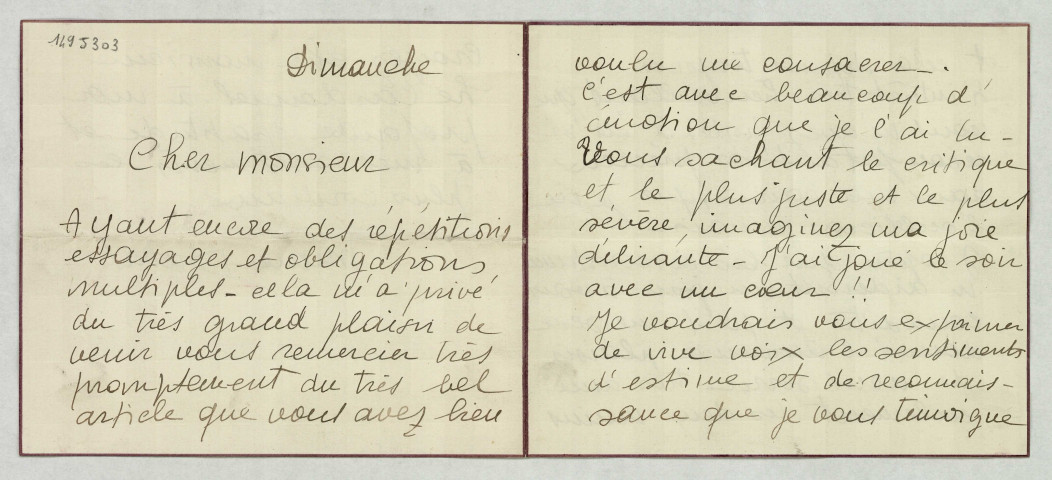 1495303
Dimanche
Cher monsieur
Ayant encore des répétitions
essayages et obligations
multiples - cela m'a privé
du très grand plaisir de
venir vous remercier très
promptement du très bel
article que vous avez bien
voulu me consacrer -.
C'est avec beaucoup d'
émotion que je l'ai lu -
Vous sachant le critique
et le plus juste et le plus
sévère, imaginez ma joie
délirante - J'ai joué le soir
avec un cœur !!
Je voudrais vous exprimer
de vive voix les sentiments
d'estime et de reconnais-
sance que je vous témoigne